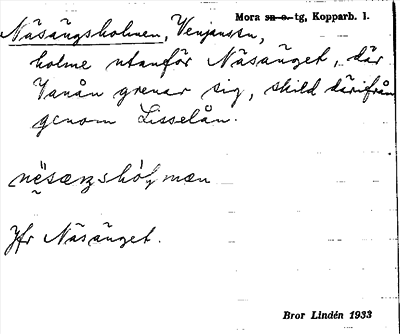 Mora sn o. tg, Kopparb. l.
Näsängsholmen, Venjanssn,
holme utanför Näsänget, där
Vanån grenar sig, skild därifrån
genom Lisselån.
Jfr Näsänget.
Bror Lindén 1933